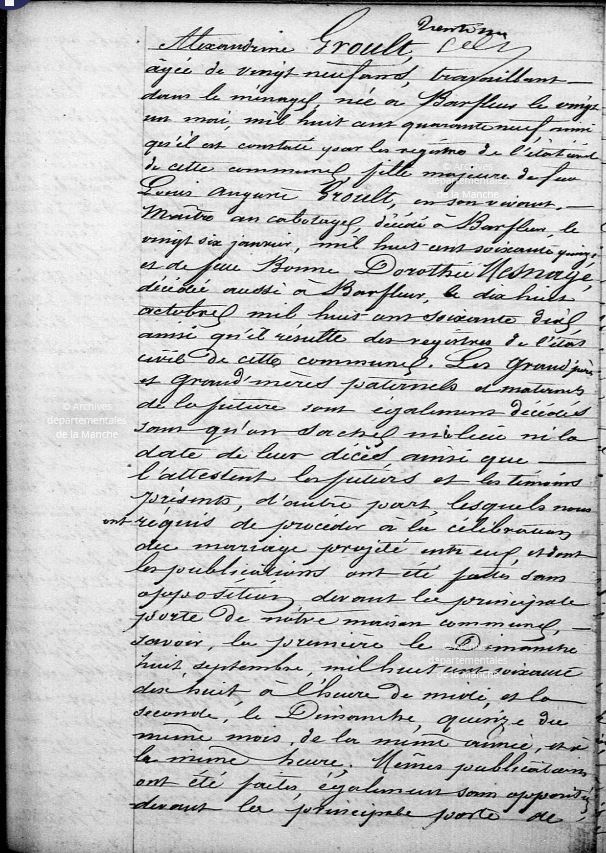 Alexandrine Groult,
âgée de vingt neuf ans, travaillant
dans le ménage, née à Barfleur le vingt
un mai, mil huit cent quarante neuf, ainsi
qu'il est constaté par les registres de l'état civil
de cette commune, fille majeure de feu
Louis Auguste Groult, en son vivant,
Maître au cabotage, décédé à Barfleur, le
vingt six janvier, mil huit cent soixante quinze
et de feue Bonne Dorothée Mesnage,
décédée aussi à Barfleur, le dix huit
octobre mil huit cent soixante dix,
ainsi qu'il résulte des registres de l'état
civil de cette commune. Les Grand'pères
et Grand'mères paternels et maternels
de la future sont également décédés
sans qu'on sache ni le lieu ni la
date de leur décès ainsi que
l'attestent les futurs et les témoins
présents, d'autre part, lesquels nous
ont requis de procéder à la célébration
du mariage projeté entre eux, et dont
les publications ont été faites sans
opposition devant la principale
porte de nôtre maison commune,
savoir, la première le Dimanche
huit septembre, mil huit cent soixante
dix huit à l'heure de midi, et la
seconde, le Dimanche, quinze du
même mois, de la même année, et à
la même heure. Mêmes publications
ont été faites également sans opposition
devant la principale porte de
© Archives
départementales
de la Manche
© Archives
départementales
de la Manche
départementales
de la Manche